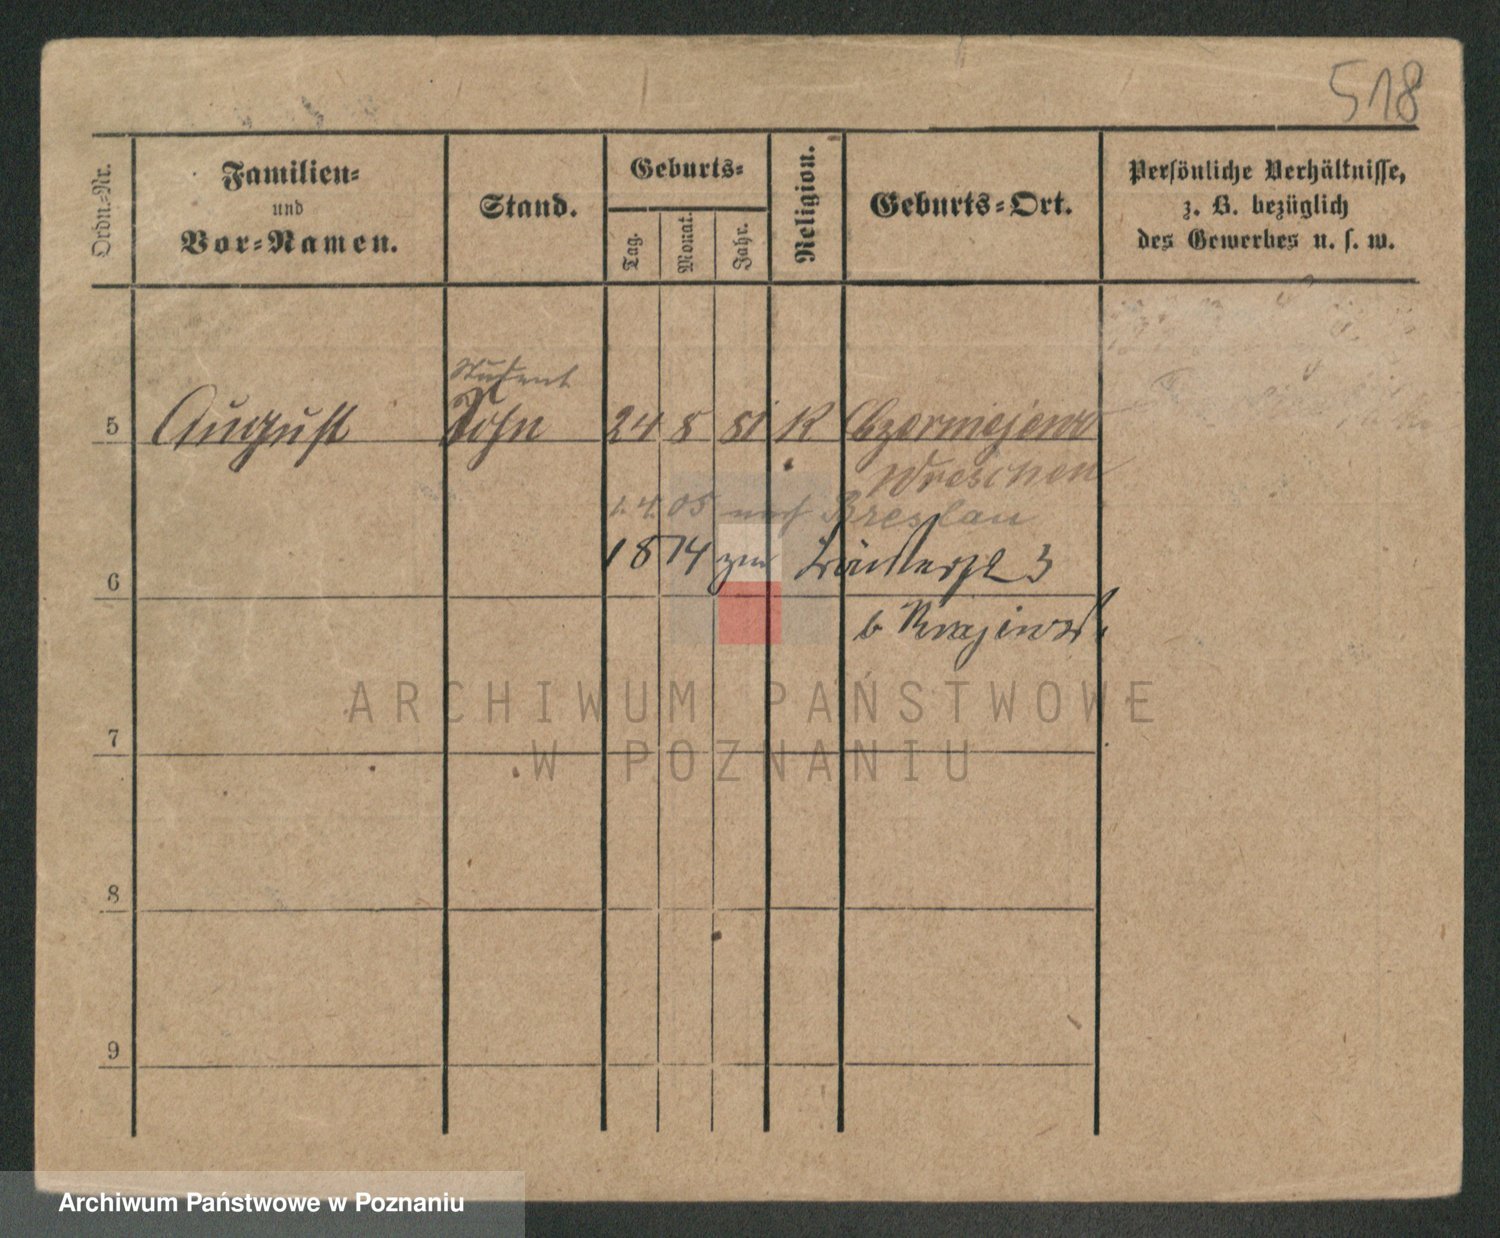 518
Ordn.-Nr.
Familien-
und
Vor-Namen.
Stand.
Geburts-
Tag.
Monat.
Jahr.
Religion.
Geburts-Ort.
Persönliche Verhältnisse,
z. B. bezüglich
des Gewerbes u. s. w.
Student
5 August Sohn 24 8 81 K Czerniejewo
Wreschen
1.4.05 nach Breslau
18 14 zur 3
6
b Krajewski
ARCHIWUM PAŃSTWOWE
W POZNANIU
7
8
9
Archiwum Państwowe w Poznaniu